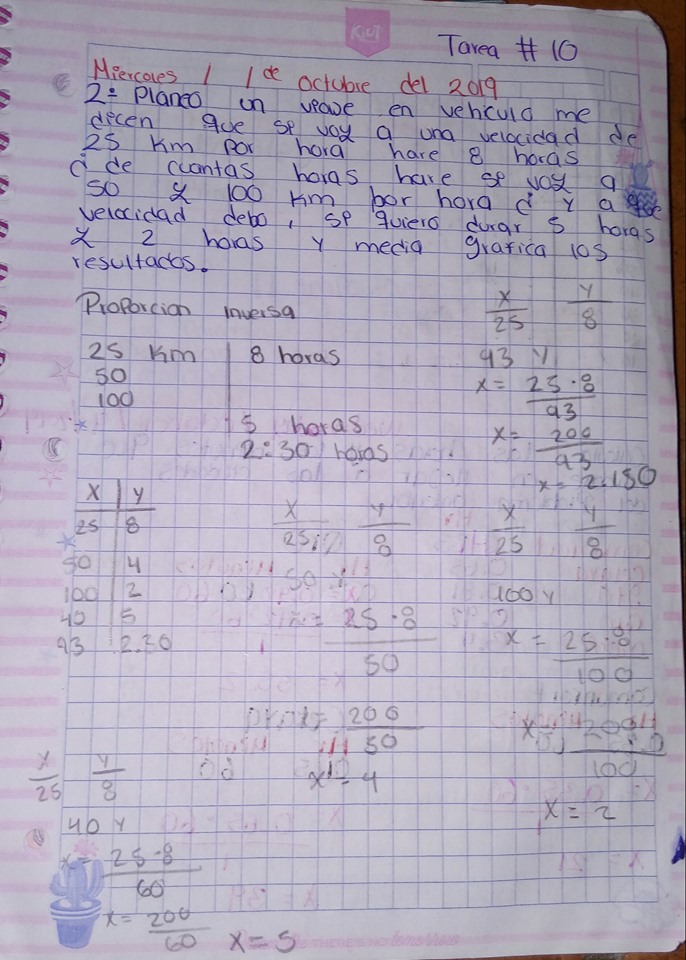 Tarea # 10
Miercoles / 1 de octubre del 2019
2= Planeo un en vehiculo me
decen que se voy a una velocidad de
25 Km por hora hare 8 horas
de cuantas horas hare se voy a
50 y 100 Km por hora y a que
velocidad debo, se quiero durar 5 horas
y 2 horas y media grafica los
resultados.
Proporcion inversa
25 Km | 8 horas
50
100
5 horas
2:30 horas
X | Y
25 | 8
50 | 4
100 | 2
40 | 5
93 | 2.30
X Y
25 8
93 Y
x = 25·8
93
x = 200
93
x = 2.150
X Y
25 8
50 Y
= 25·8
50
= 200
50
x = 4
X Y
25 8
100 Y
x = 25·8
100
x 200
100
x = 2
X Y
25 8
40 Y
x = 25·8
60
x = 200
60
x = 5